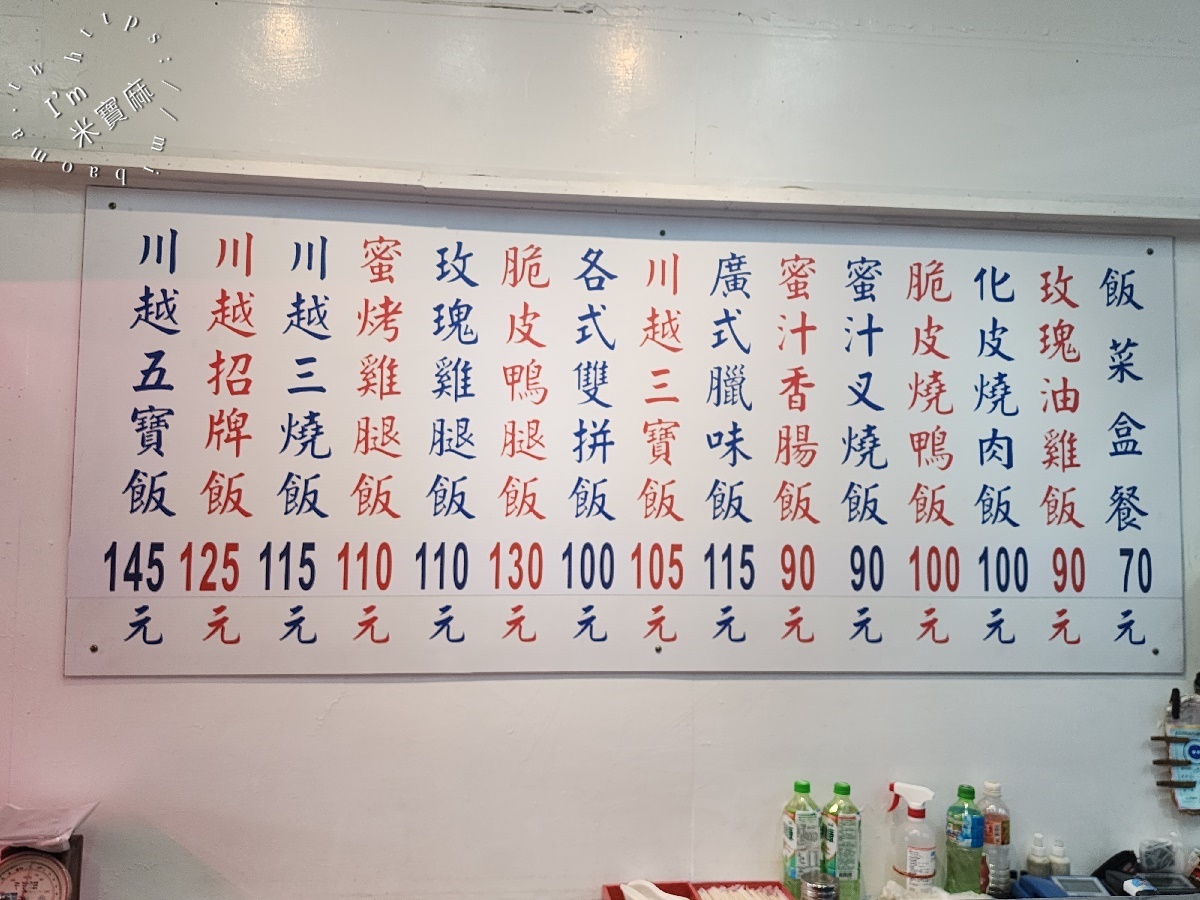 飯菜盒餐 70元
玫瑰油雞飯 90元
化皮燒肉飯 100元
脆皮燒鴨飯 100元
蜜汁叉燒飯 90元
蜜汁香腸飯 90元
廣式臘味飯 115元
川越三寶飯 105元
各式雙拼飯 100元
脆皮鴨腿飯 130元
玫瑰雞腿飯 110元
蜜烤雞腿飯 110元
川越三燒飯 115元
川越招牌飯 125元
川越五寶飯 145元
I'm
米寶麻